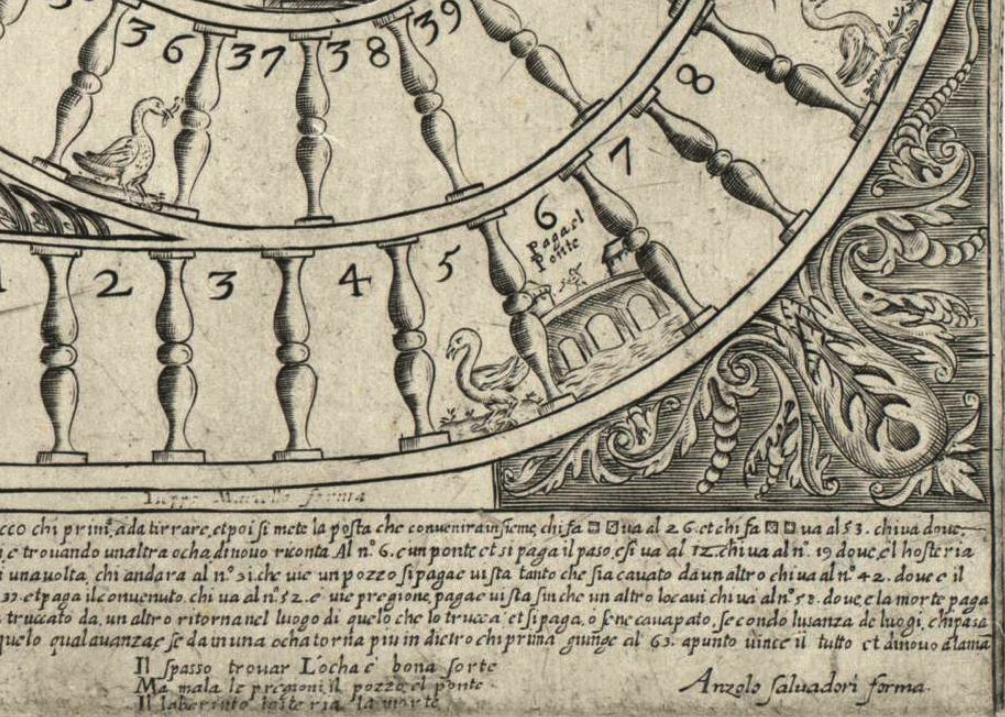 36 37 38 39
8
7
6
Paga el
Ponte
2 3 4 5
forma
cco chi prima da tirrare, et poi si mete la posta che convenira insieme, chi fa va al 26. et chi fa va al 53. chi va dove
e trovando un altra ocha di novo riconta Al n.º 6. e un ponte et si paga il paso, e si va al 12. chi va al n. 19 dove el hosteria
una volta, chi andara al n.º 31. che vie un pozzo si paga e vi sta tanto che sia cavato da un altro chi va al n.º 42. dove e il
et paga il convenuto. chi va al n.º 52. e vie pregione, paga e vi sta sin che un altro lo cavi chi va al n.º 58. dove e la morte paga
truccato da, un altro ritorna nel luogo di quelo che lo trucca et si paga, o se ne cava pato, se condo lusanza de luogi, chi pasa
quelo qual avanza, e se da in una ocha torna piu in dietro chi prima giunge al 63. apunto vince il tutto et di novo
Il spasso trovar L'ocha e bona sorte
Ma mala le pregioni, il pozzo, el ponte
Il laberinto la morte
Anzolo salvadori forma.